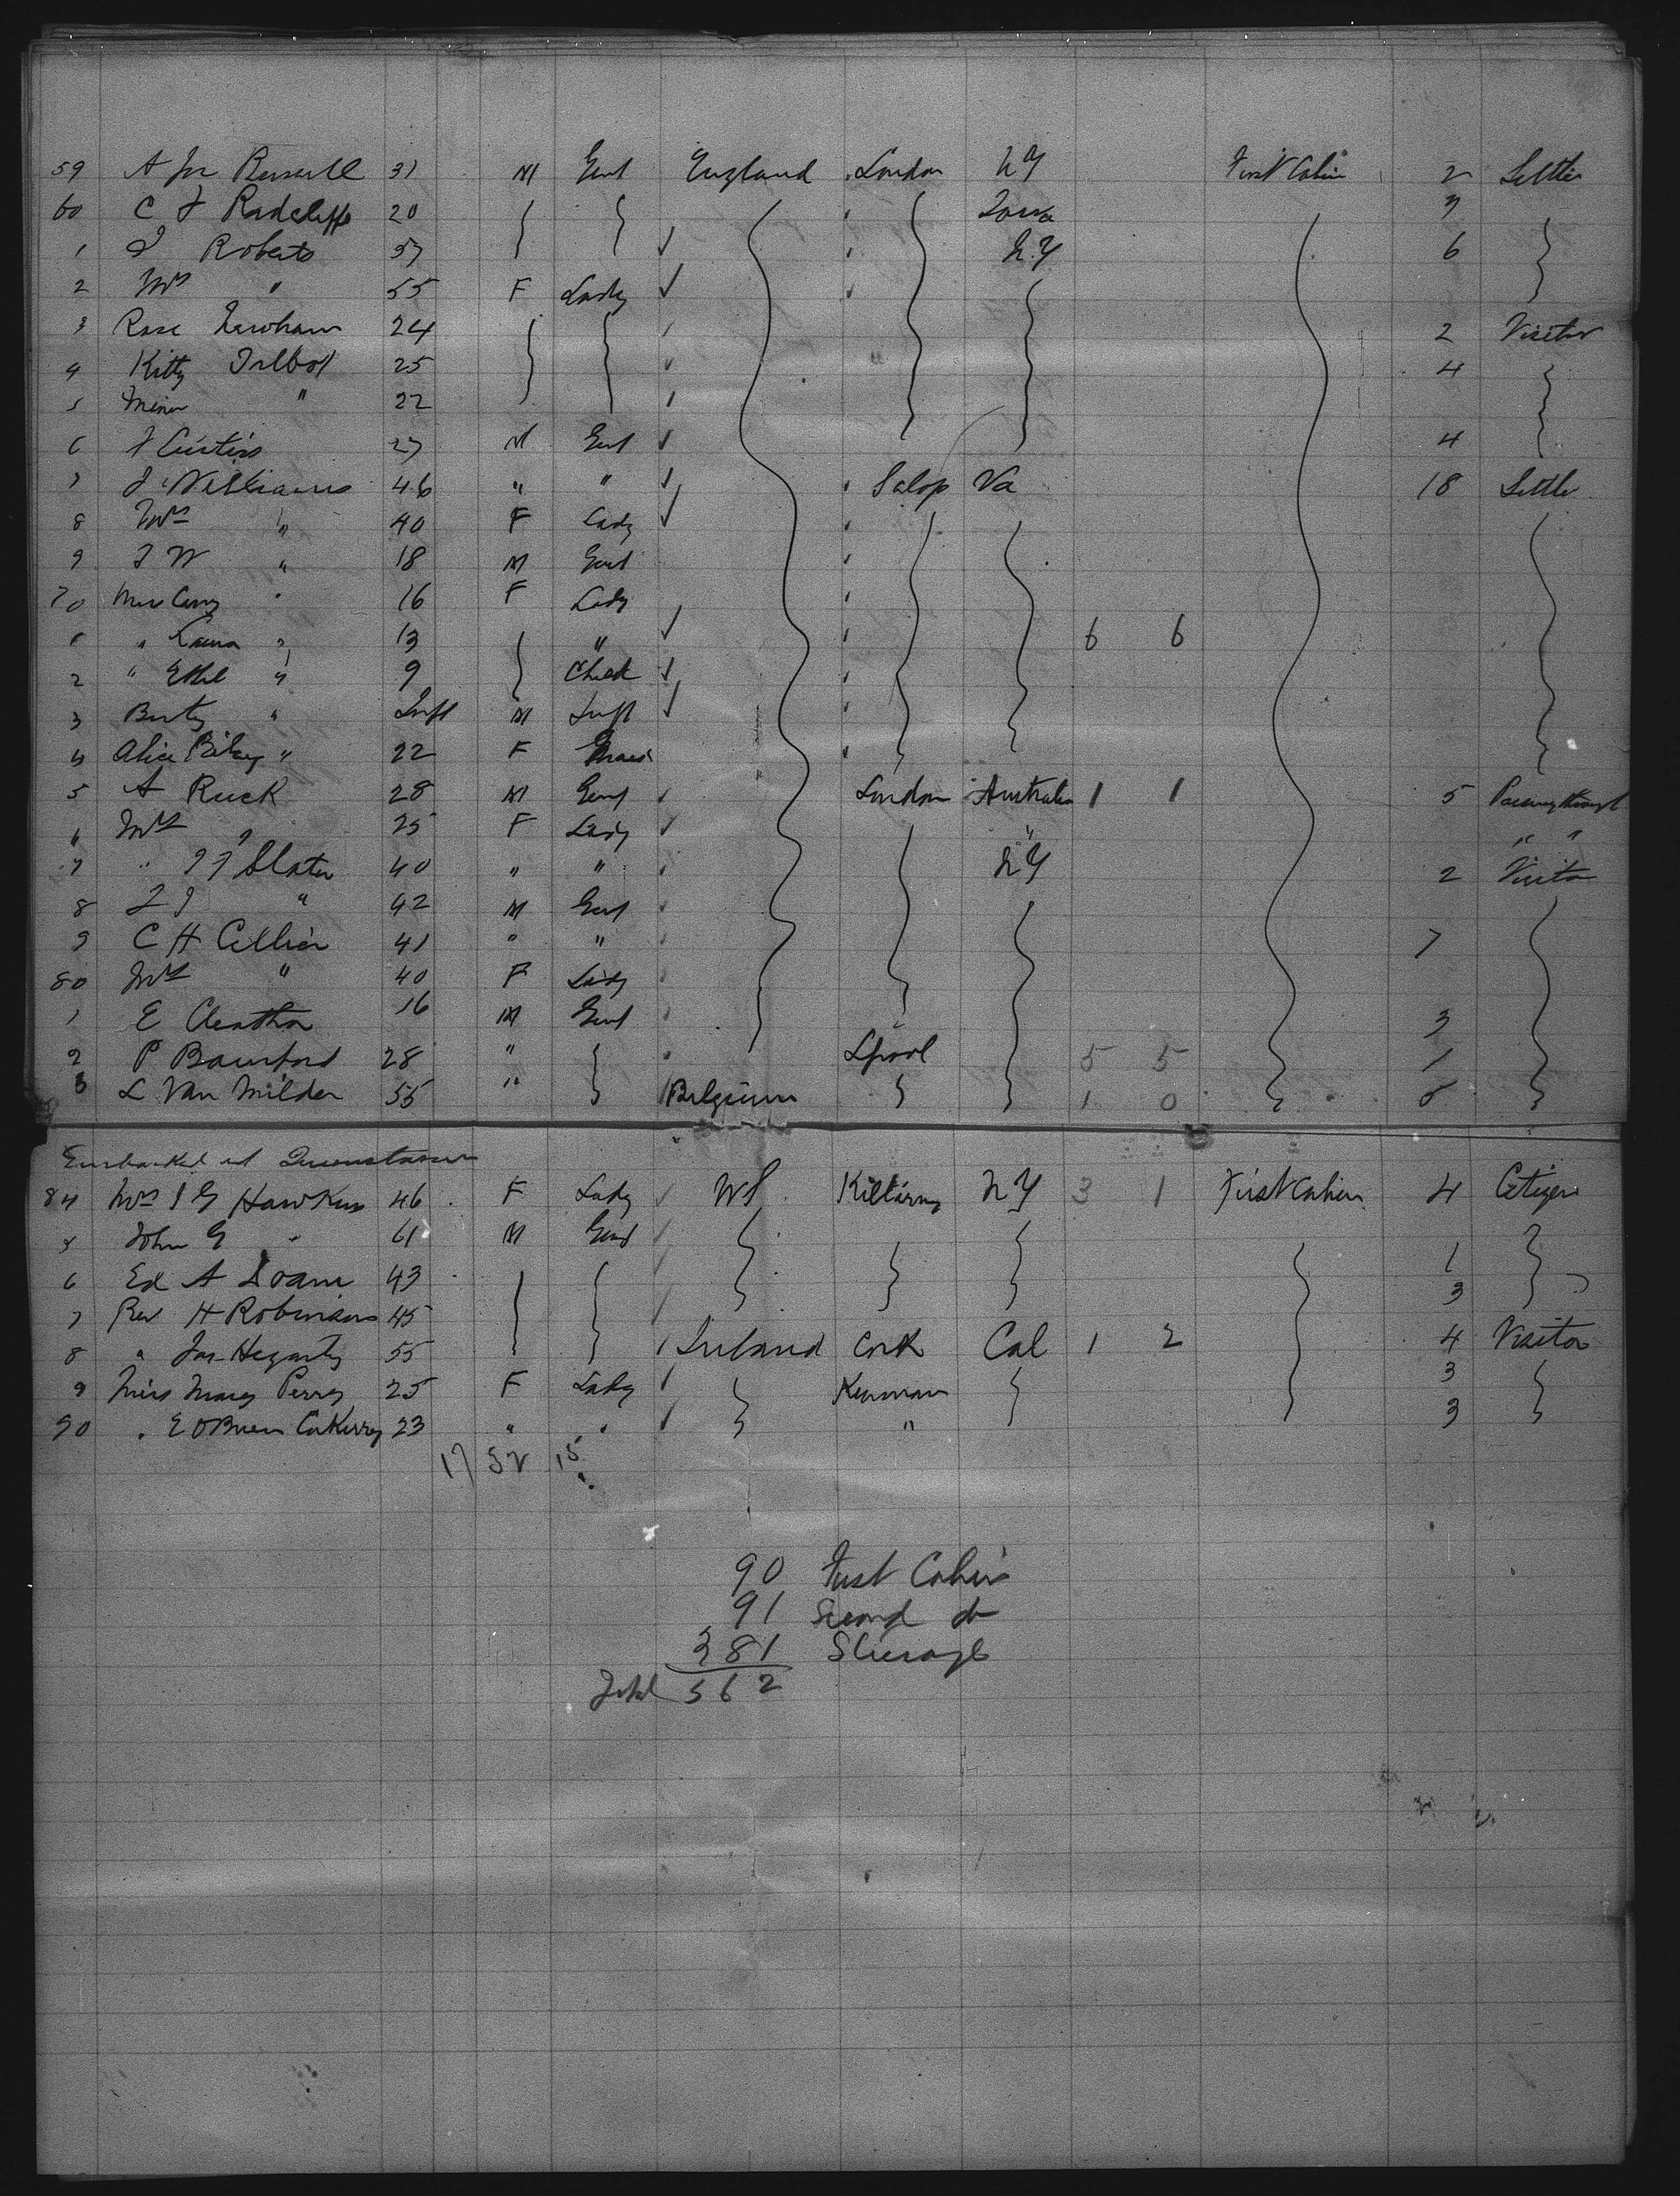 59 A Jnr Russell 31 M Gent England London NY First Cabin 2 Settler
60 C F Radcliffe 20 Iowa 3
1 J Roberts 37 N.Y 6
2 Mrs " 55 F Lady
3 Rose 24 2 Visitor
4 Kitty Talbot 25 4
5 " 22
6 J Curtiss 27 M Gent 4
7 J Williams 46 " " Salop Va 18 Settler
8 Mrs " 40 F Lady
9 J W " 18 M Gent
70 Miss " 16 F Lady
1 " Laura " 13 " 6 6
2 " Ethel " 9 Child
3 Berty " Inft M Inft
4 Alice " 22 F Maid
5 A Ruck 28 M Gent London Australia 1 1 5 Passing through
6 Mrs " 25 F Lady " " "
7 " J J Slater 40 " " NY 2 Visitor
8 J J " 42 M Gent
9 C H Collier 41 " " 7
80 Mrs " 40 F Lady
1 E 16 M Gent 3
2 P Bamford 28 " Lpool 5 5 1
3 L Van Milder 55 " Belgium 1 0 5
Embarked at Queenstown
84 Mrs J G Hawkes 46 F Lady US Killarney NY 3 1 First Cabin 4 Citizen
5 John G " 61 M Gent
6 Ed A 43 1
7 Rev H Robinson 45 3
8 " Jas Hegarty 55 Ireland Cork Cal 1 2 4 Visitor
9 Miss Mary Perry 25 F Lady Kenmare 3
90 " E OBrien Corkerry 23 " " " 3
17 52 15
90 First Cabin
91 Second do
381 Steerage
Total 562